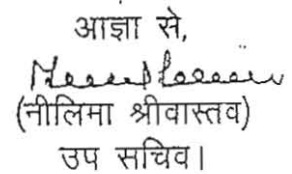 आज्ञा से,
(नीलिमा श्रीवास्तव)
उप सचिव।